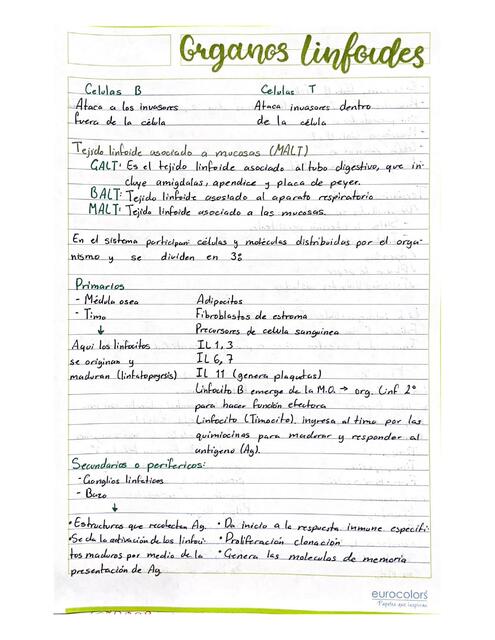 Organos linfoides
Celulas B
Ataca a los invasores
fuera de la célula
Celulas T
Ataca invasores dentro
de la célula
Tejido linfoide asociado a mucosas (MALT)
GALT: Es el tejido linfoide asociado al tubo digestivo, que in-
cluye amigdalas, apendice y placa de peyer.
BALT: Tejido linfoide asosiado al aparato respiratorio
MALT: Tejido linfoide asociado a las mucosas.
En el sistema participan: células y moléculas distribuidas por el orga-
nismo y se dividen en 3:
Primarios
- Médula osea
- Timo
↓
Aqui los linfocitos
se originan y
maduran (linfatopoyesis)
Adipocitos
Fibroblastos de estroma
Precursores de celula sanguinea
IL 1, 3
IL 6, 7
IL 11 (genera plaquetas)
Linfocito B emerge de la M.O. → org. Linf 2°
para hacer función efectora
Linfocito (Timocito). ingresa al timo por las
quimiocinas para madurar y responder al
antigeno (Ag).
Secundarios o perifericos:
- Ganglios linfaticos
- Bazo
↓
• Estructuras que recolectan Ag.
• Se da la activación de los linfoci-
tos maduros por medio de la
presentación de Ag
• Da inicio a la respuesta inmune especifi-
• Proliferación clonación
• Genera las moleculas de memoria
eurocolors
Papeles que inspiran